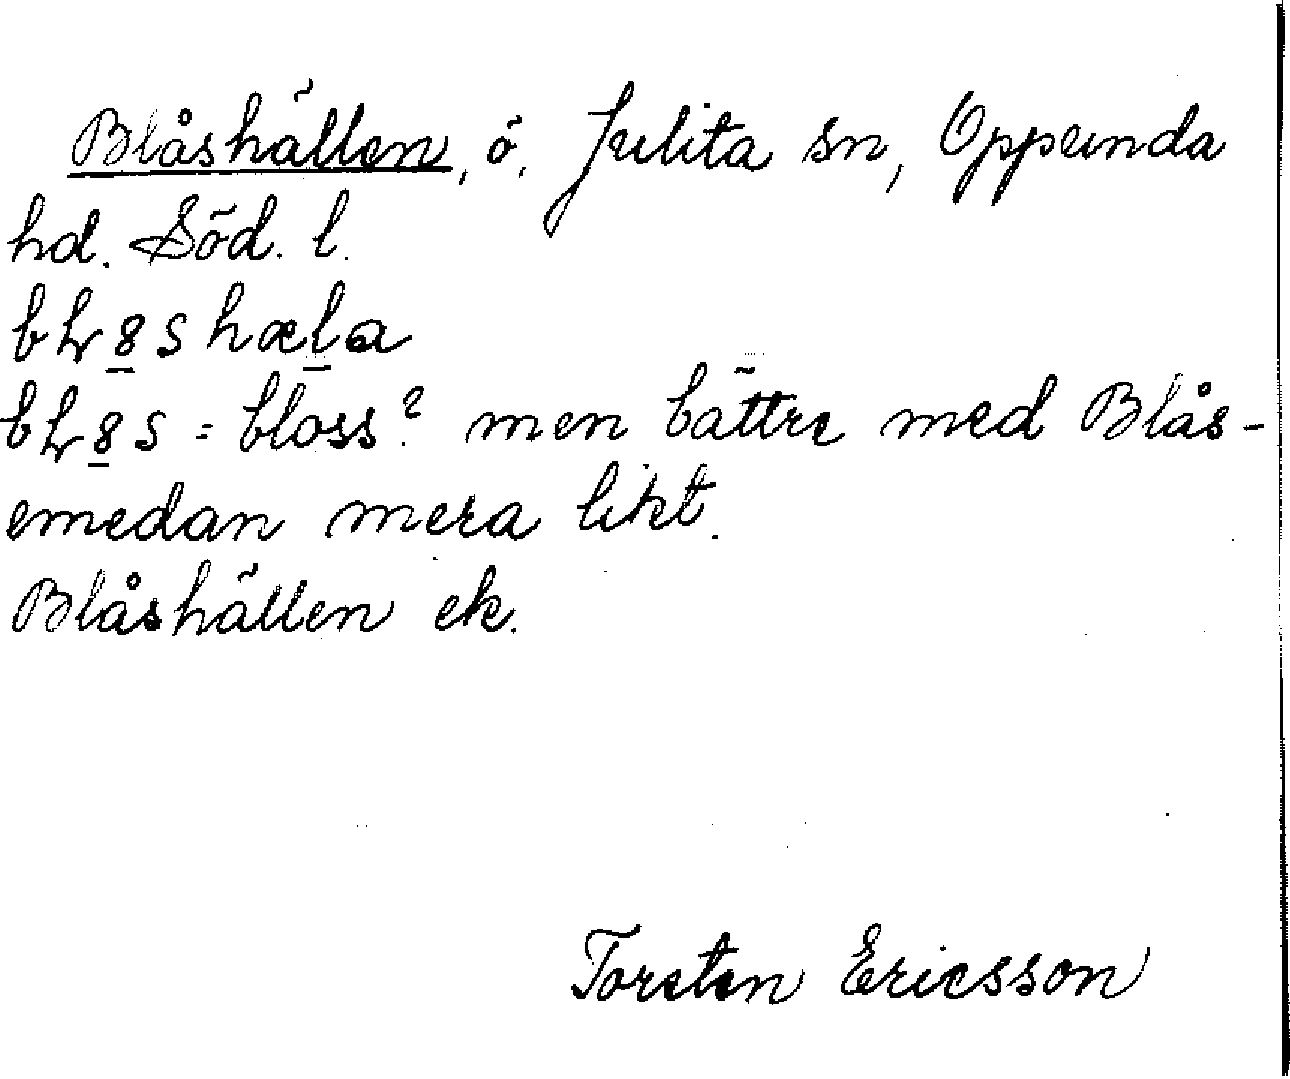 Blåshällen, ö. Julita sn, Oppunda
hd. Söd. l.
bɫ8s hæla
bɫ8s = bloss? men bättre med Blås-
emedan mera likt.
Blåshällen ek.
Torsten Ericsson